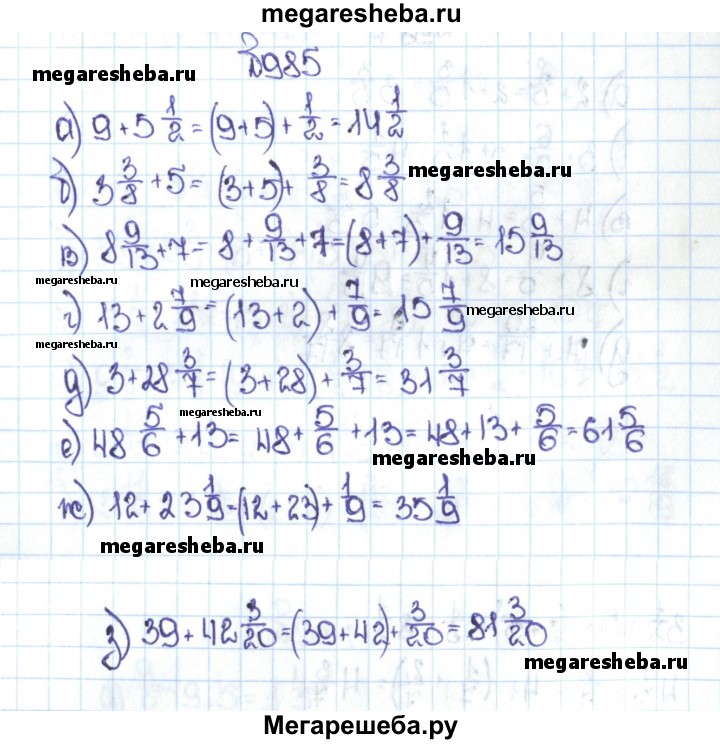 megaresheba.ru
№985
megaresheba.ru
а) 9 + 5 1/2 = (9+5) + 1/2 = 14 1/2
б) 3 3/8 + 5 = (3+5) + 3/8 = 8 3/8
megaresheba.ru
в) 8 9/13 + 7 = 8 + 9/13 + 7 = (8+7) + 9/13 = 15 9/13
megaresheba.ru megaresheba.ru
г) 13 + 2 7/9 = (13+2) + 7/9 = 15 7/9
megaresheba.ru
megaresheba.ru
д) 3 + 28 3/7 = (3+28) + 3/7 = 31 3/7
megaresheba.ru
е) 48 5/6 + 13 = 48 + 5/6 + 13 = 48 + 13 + 5/6 = 61 5/6
megaresheba.ru
ж) 12 + 23 1/9 = (12+23) + 1/9 = 35 1/9
megaresheba.ru
з) 39 + 42 3/20 = (39+42) + 3/20 = 81 3/20
megaresheba.ru
Мегарешеба.ру